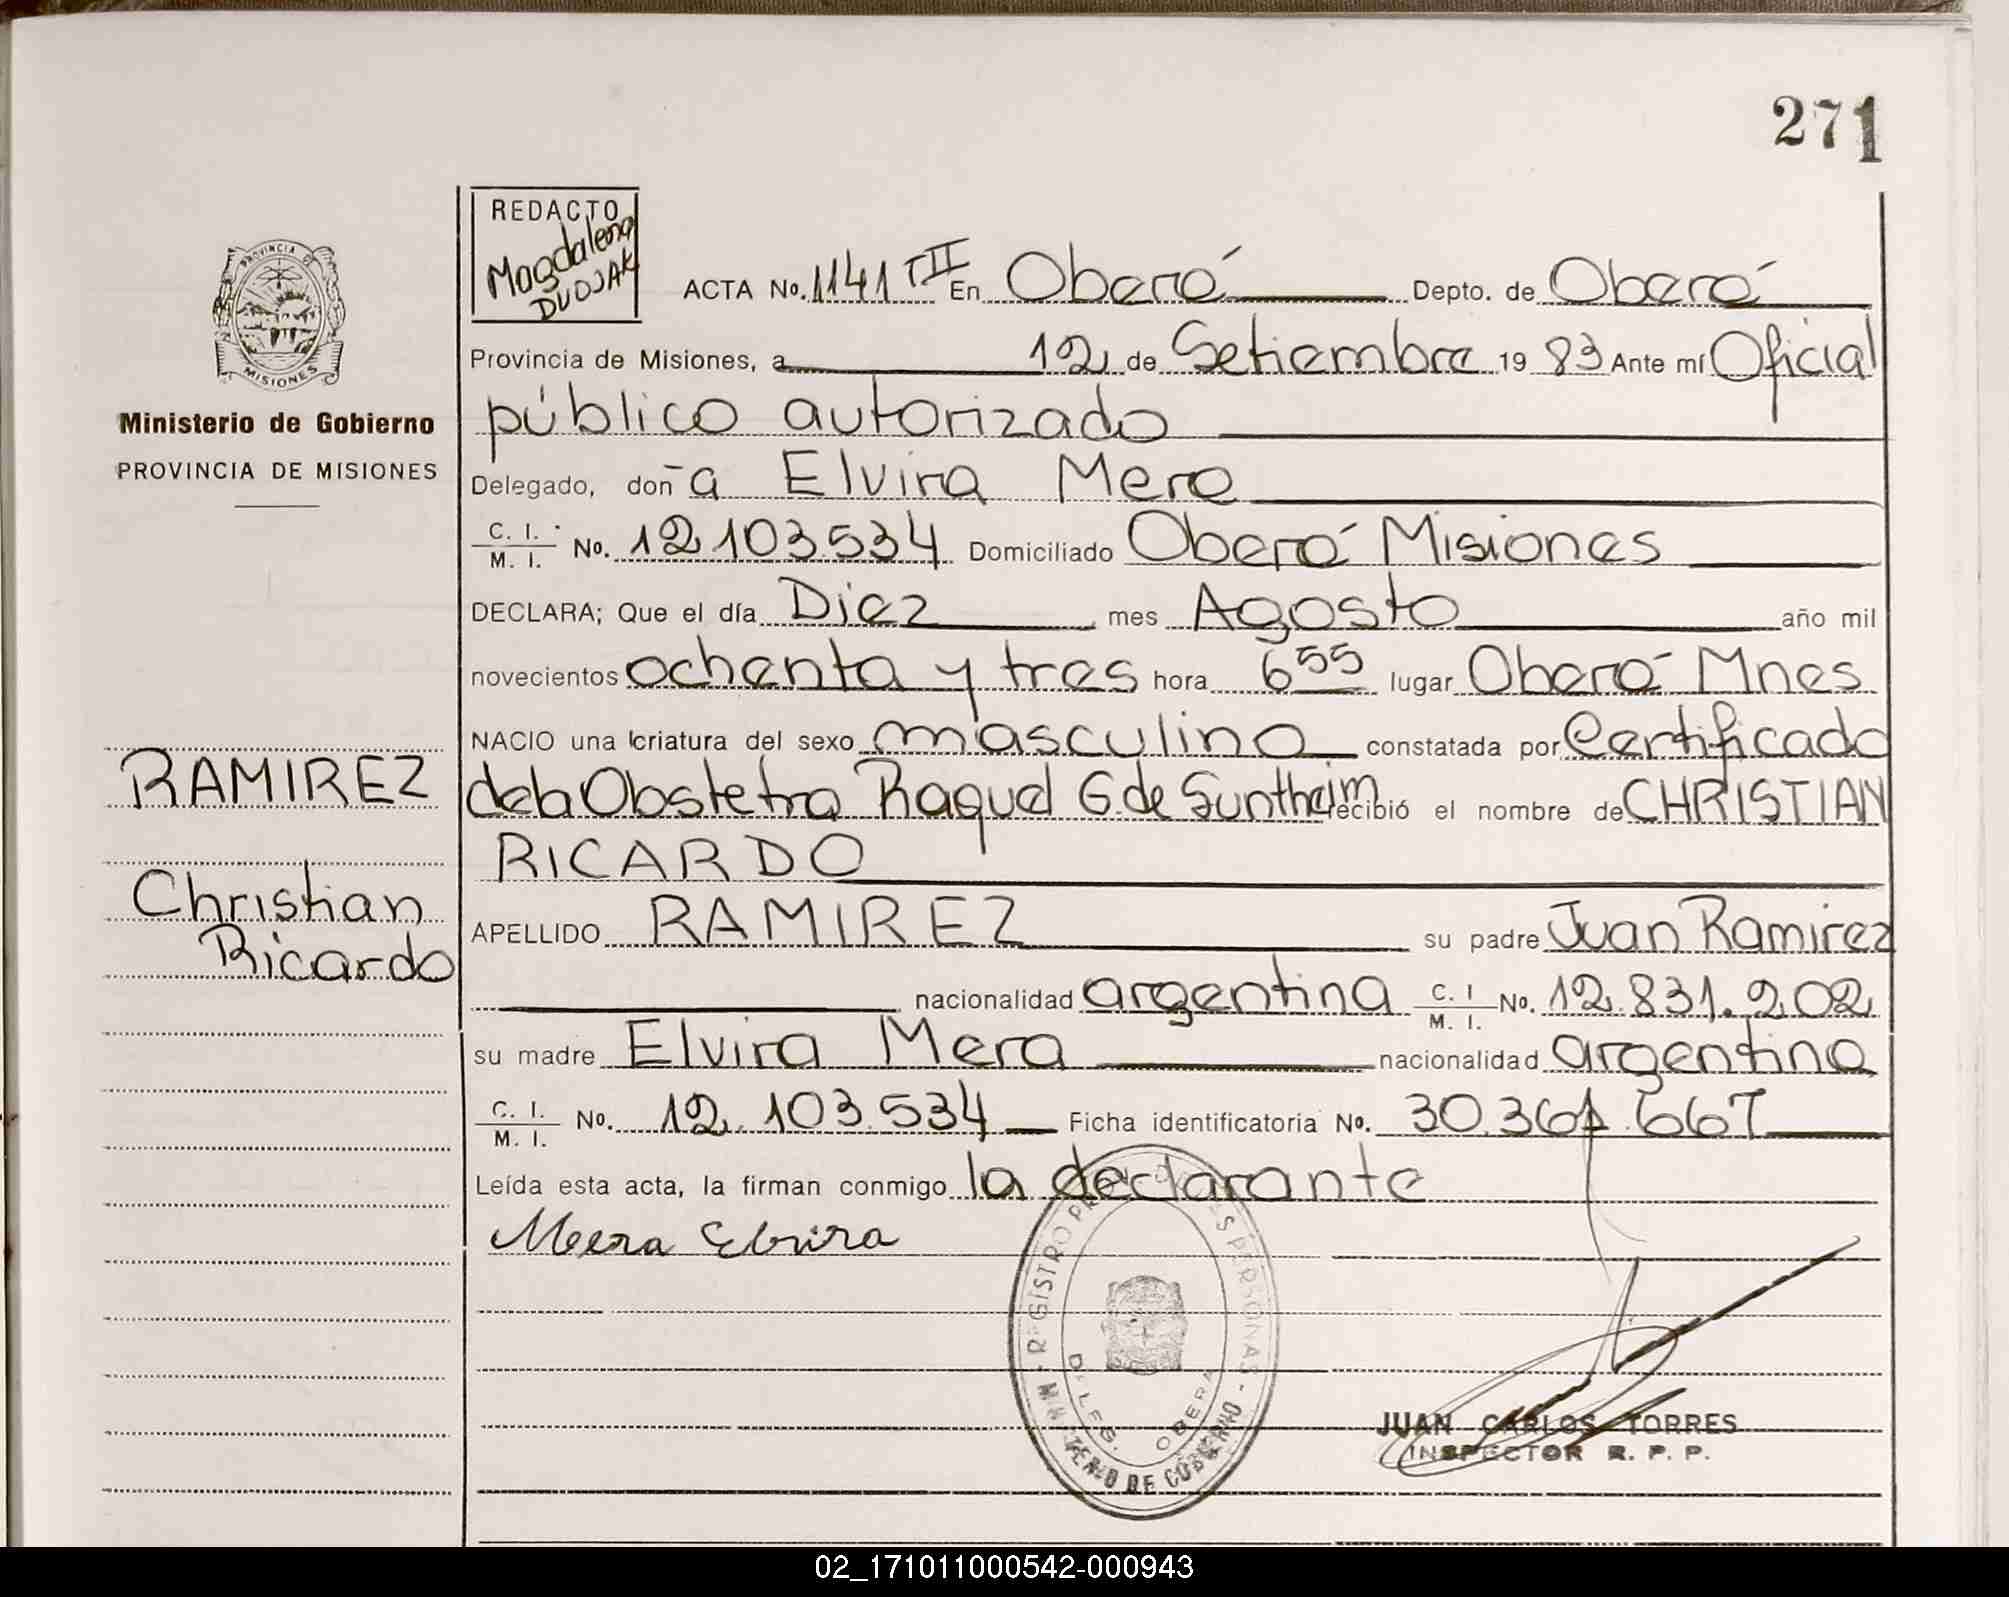 271
REDACTO
Magdalena
DUDJAK
PROVINCIA DE
MISIONES
Ministerio de Gobierno
PROVINCIA DE MISIONES
ACTA No. 1141 TII En Oberá Depto. de Oberá
Provincia de Misiones, a 12 de Setiembre 19 83 Ante mí Oficial
público autorizado
Delegado, doña Elvira Mera
C. I. / M. I. No. 12.103.534 Domiciliado Oberá Misiones
DECLARA; Que el día Diez mes Agosto año mil
novecientos ochenta y tres hora 6 55 lugar Oberá Mnes
NACIO una criatura del sexo masculino constatada por Certificado
de la Obstetra Raquel G. de Suntheim recibió el nombre de CHRISTIAN
RICARDO
APELLIDO RAMIREZ su padre Juan Ramirez
nacionalidad argentina C. I / M. I. No. 12.831.202
su madre Elvira Mera nacionalidad argentina
C. I. / M. I. No. 12.103.534 Ficha identificatoria No. 30.361.667
Leída esta acta, la firman conmigo la declarante
Mera Elvira
RAMIREZ
Christian
Ricardo
REGISTRO PERSONAS - MINISTERIO DE GOBIERNO
DELEG. OBERA
JUAN CARLOS TORRES
INSPECTOR R. P. P.
02_171011000542-000943